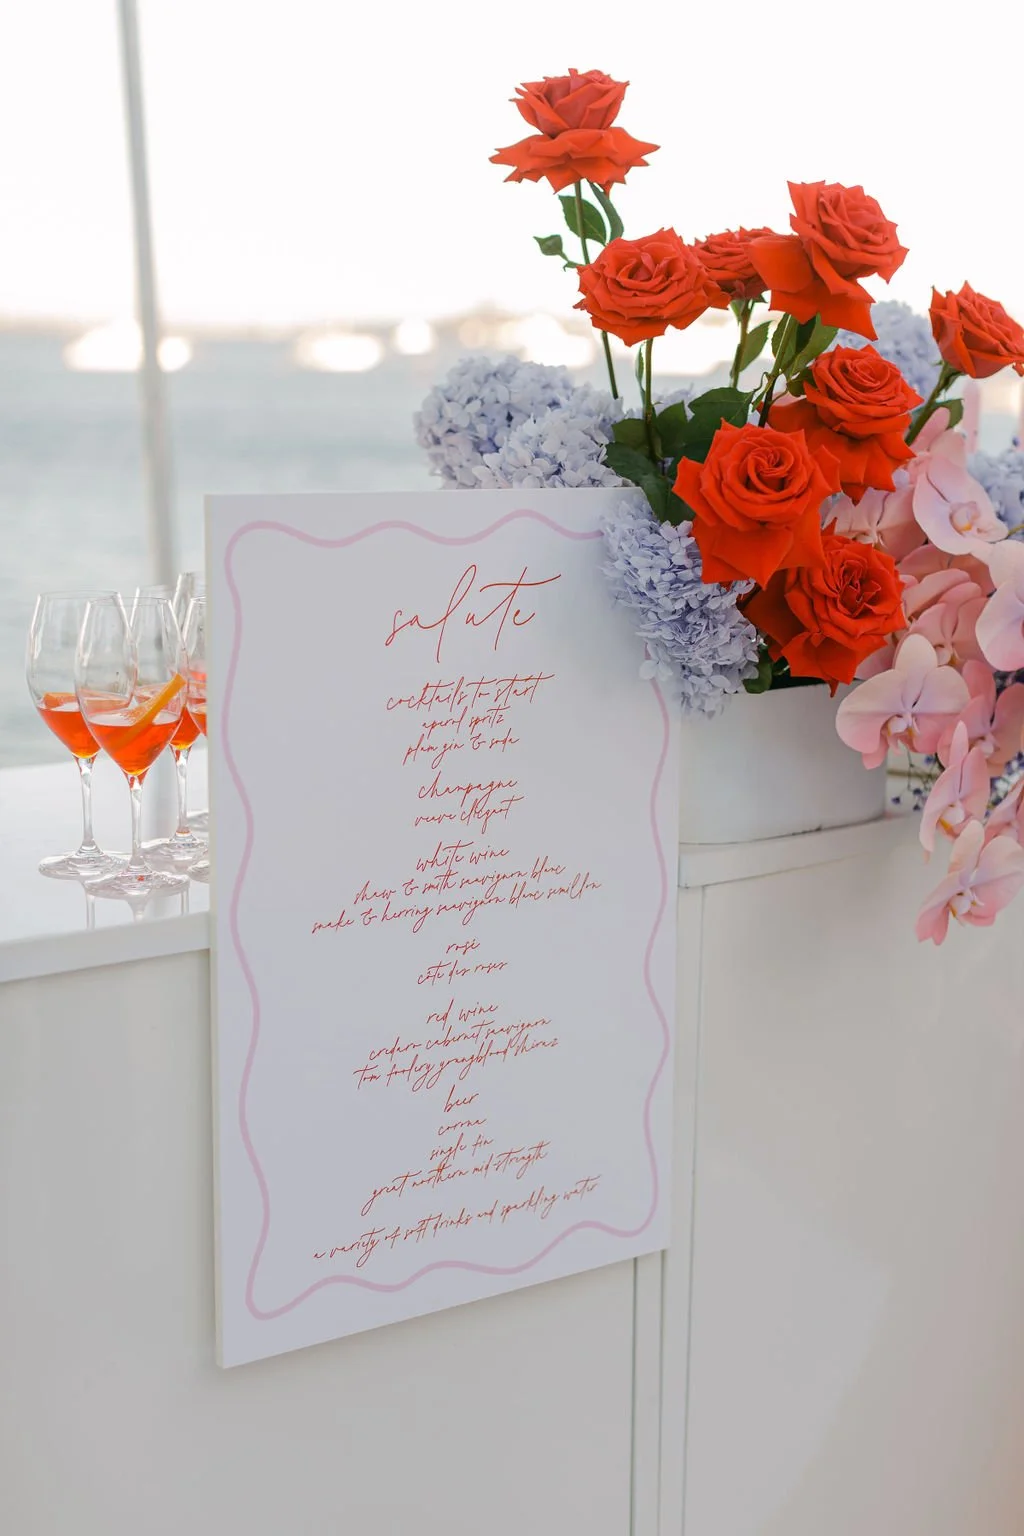 salute
cocktails to start
aperol spritz
plum gin & soda
champagne
veuve clicquot
white wine
shaw & smith sauvignon blanc
snake & herring sauvignon blanc semillon
rosé
côte des roses
red wine
credaro cabernet sauvignon
tom foolery youngblood shiraz
beer
corona
single fin
great northern mid-strength
a variety of soft drinks and sparkling water